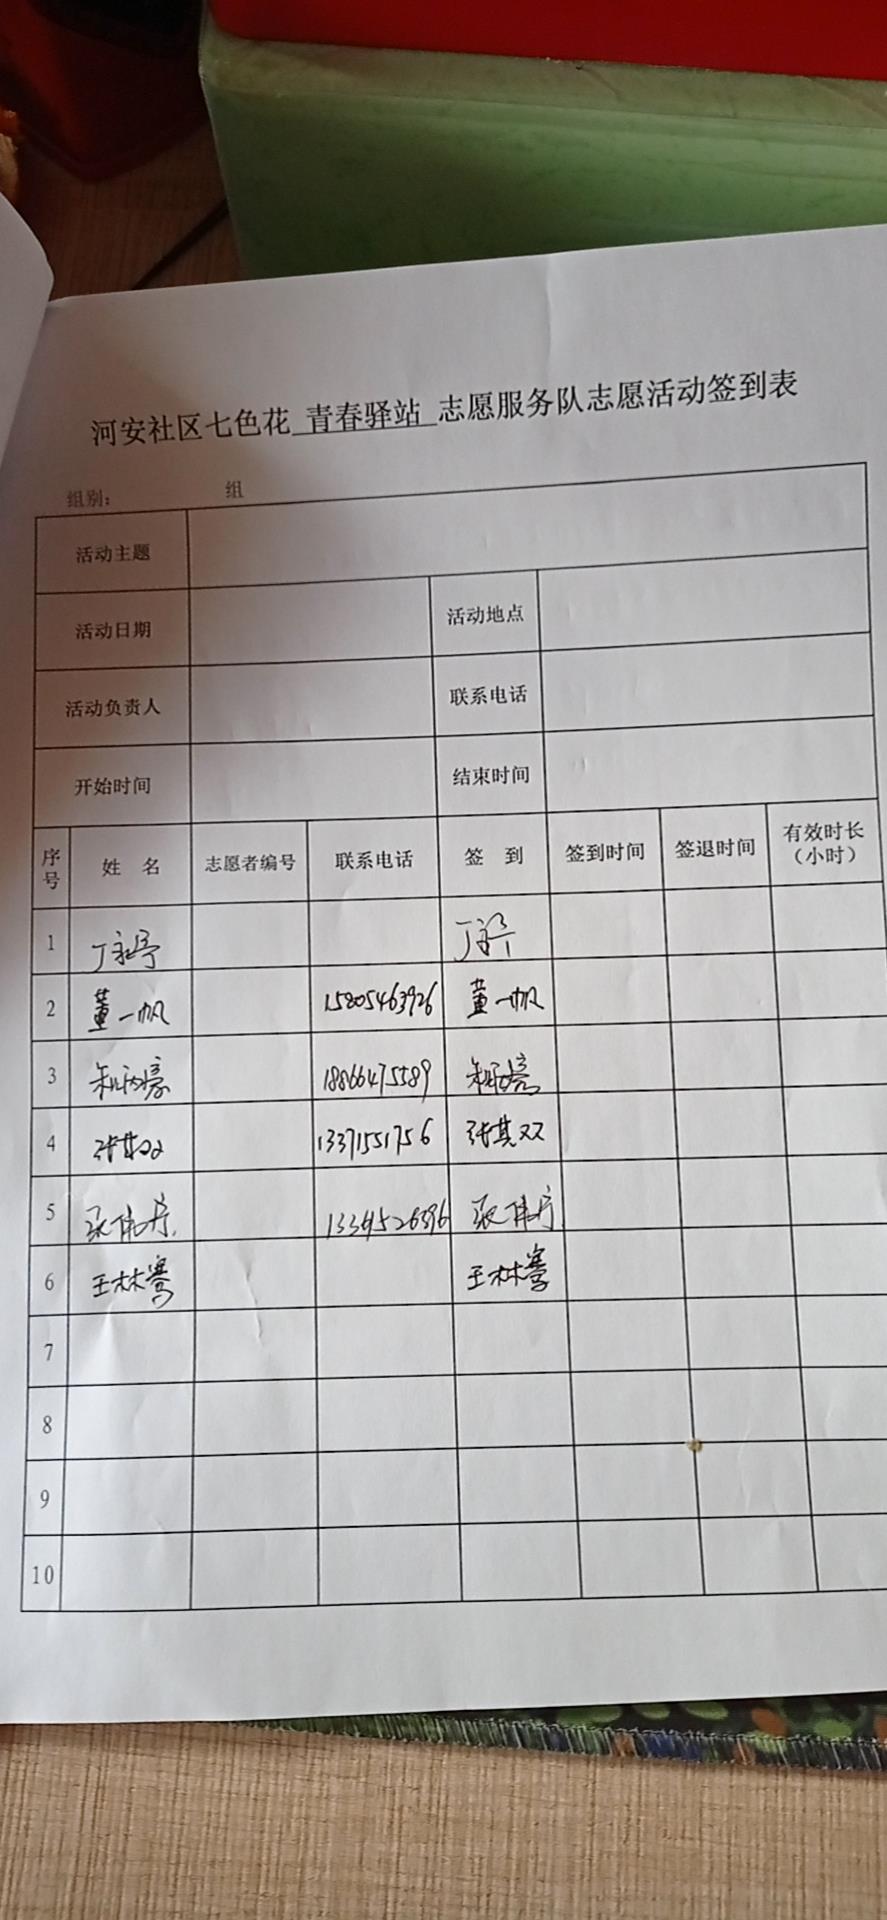 河安社区七色花 青春驿站 志愿服务队志愿活动签到表
组别： 组
活动主题
活动日期 活动地点
活动负责人 联系电话
开始时间 结束时间
序号 姓 名 志愿者编号 联系电话 签 到 签到时间 签退时间 有效时长（小时）
1 丁
2 董一帆 15805463926 董一帆
3 18866475589
4 张其双 13371551756 张其双
5 张伟 张伟
6 王林骞 王林骞
7
8
9
10